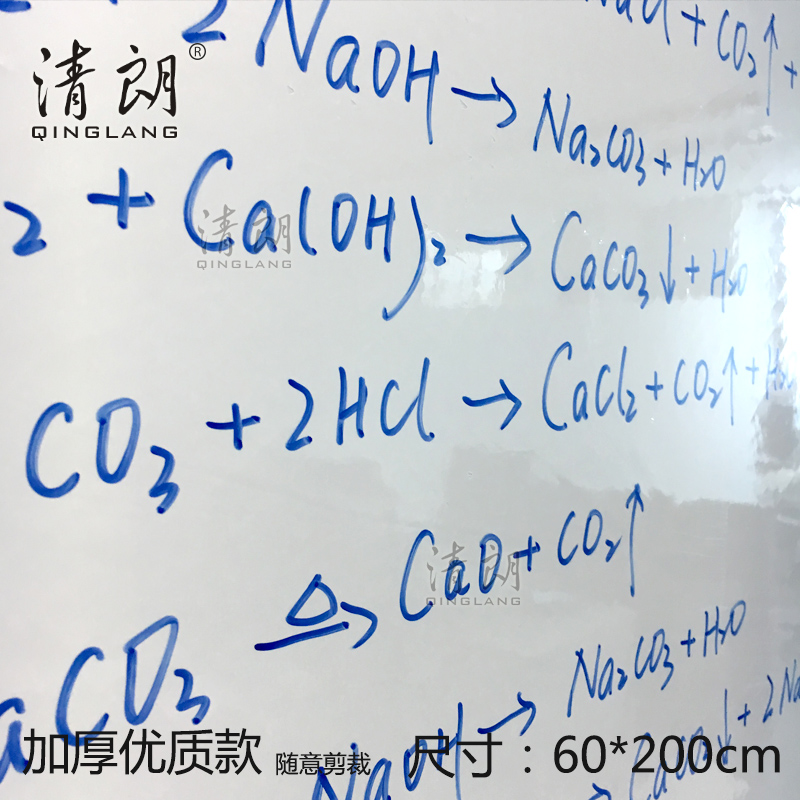 NaCl + CO₂↑ +
清朗®
QINGLANG
2NaOH → Na₂CO₃ + H₂O
₂ + Ca(OH)₂ → CaCO₃↓ + H₂O
清朗
QINGLANG
CO₃ + 2HCl → CaCl₂ + CO₂↑ + H₂O
aCO₃ △→ CaO + CO₂↑
清朗
QINGLANG
NaOH → Na₂CO₃ + H₂O
→ CaCO₃↓ + 2Na
加厚优质款 随意剪裁 尺寸：60*200cm